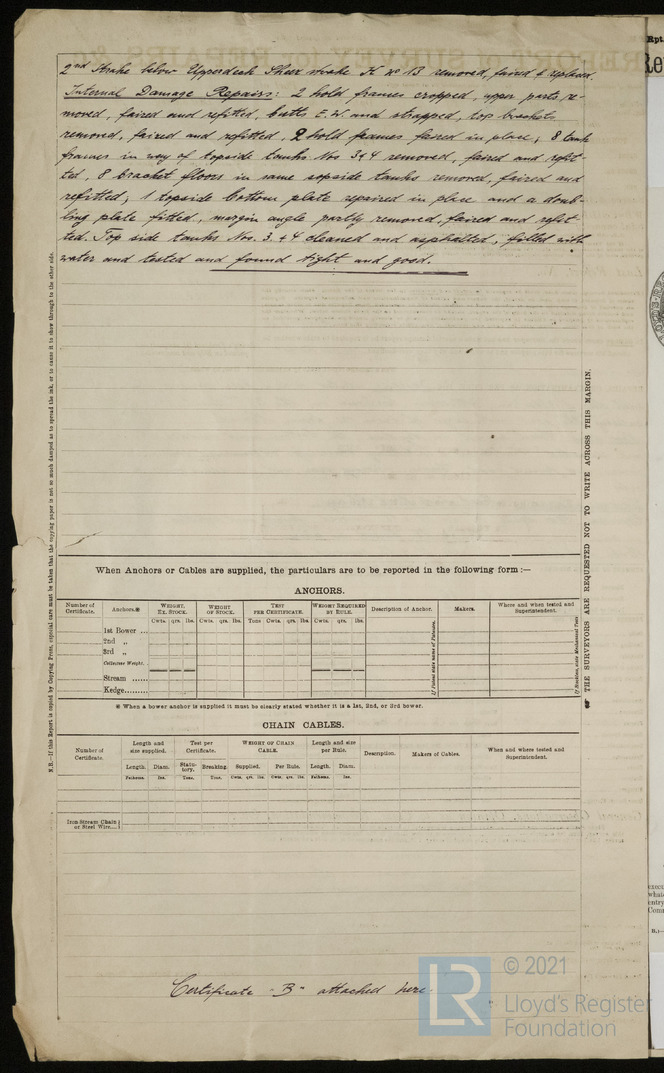 2nd Strake below Upperdeck Sheer strake K No 13 removed, faired & replaced.
Internal Damage Repairs: 2 hold frames cropped, upper parts re-
moved, faired and refitted, butts E.W. and strapped, top brackets
removed, faired and refitted, 2 hold frames faired in place, 8 tank
frames in way of topside tanks Nos 3 & 4 removed, faired and refit-
ted, 8 bracket floors in same topside tanks removed, faired and
refitted, 1 topside bottom plate repaired in place and a doub-
ling plate fitted, margin angle partly removed, faired and refit-
ted. Top side tanks Nos. 3 & 4 cleaned and asphalted, filled with
water and tested and found tight and good.
When Anchors or Cables are supplied, the particulars are to be reported in the following form :—
ANCHORS.
Number of Certificate. Anchors.* WEIGHT. EX. STOCK. WEIGHT OF STOCK. TEST PER CERTIFICATE. WEIGHT REQUIRED BY RULE. Description of Anchor. Makers. Where and when tested and Superintendent.
Cwts. qrs. lbs. Cwts. qrs. lbs. Tons Cwts. qrs. lbs. Cwts. qrs. lbs.
1st Bower ...
2nd „
3rd „
Collective Weight.
Stream ......
Kedge........
* When a bower anchor is supplied it must be clearly stated whether it is a 1st, 2nd, or 3rd bower.
CHAIN CABLES.
Number of Certificate. Length and size supplied. Test per Certificate. WEIGHT OF CHAIN CABLE. Length and size per Rule. Description. Makers of Cables. When and where tested and Superintendent.
Length. Diam. Statutory. Breaking. Supplied. Per Rule. Length. Diam.
Fathoms. Ins. Tons. Tons. Cwts. qrs. lbs. Cwts. qrs. lbs. Fathoms. Ins.
Iron Stream Chain
or Steel Wire...
Certificate "B" attached here.
N.B.—If this Report is copied by Copying Press, especial care must be taken that the copying paper is not so much damped as to spread the ink, or to cause it to show through to the other side.
THE SURVEYORS ARE REQUESTED NOT TO WRITE ACROSS THIS MARGIN.
Rpt.
LR
© 2021
Lloyd's Register
Foundation